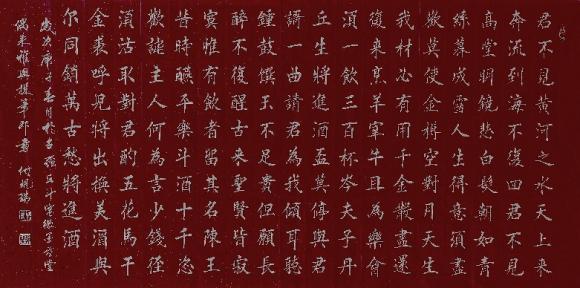 君不見黃河之水天上來
奔流到海不復回君不見
高堂明鏡悲白髮朝如青
絲暮成雪人生得意須盡
歡莫使金樽空對月天生
我材必有用千金散盡還
復來烹羊宰牛且為樂會
須一飲三百杯岑夫子丹
丘生將進酒盃莫停與君
謌一曲請君為我傾耳聽
鐘鼓饌玉不足貴但願長
醉不復醒古來聖賢皆寂
寞惟有飲者留其名陳王
昔時讌平樂斗酒十千恣
歡謔主人何為言少錢徑
須沽取對君酌五花馬千
金裘呼見將出換美酒與
尔同銷萬古愁將進酒
歲次庚子春月於古
偶來雅興援筆即書